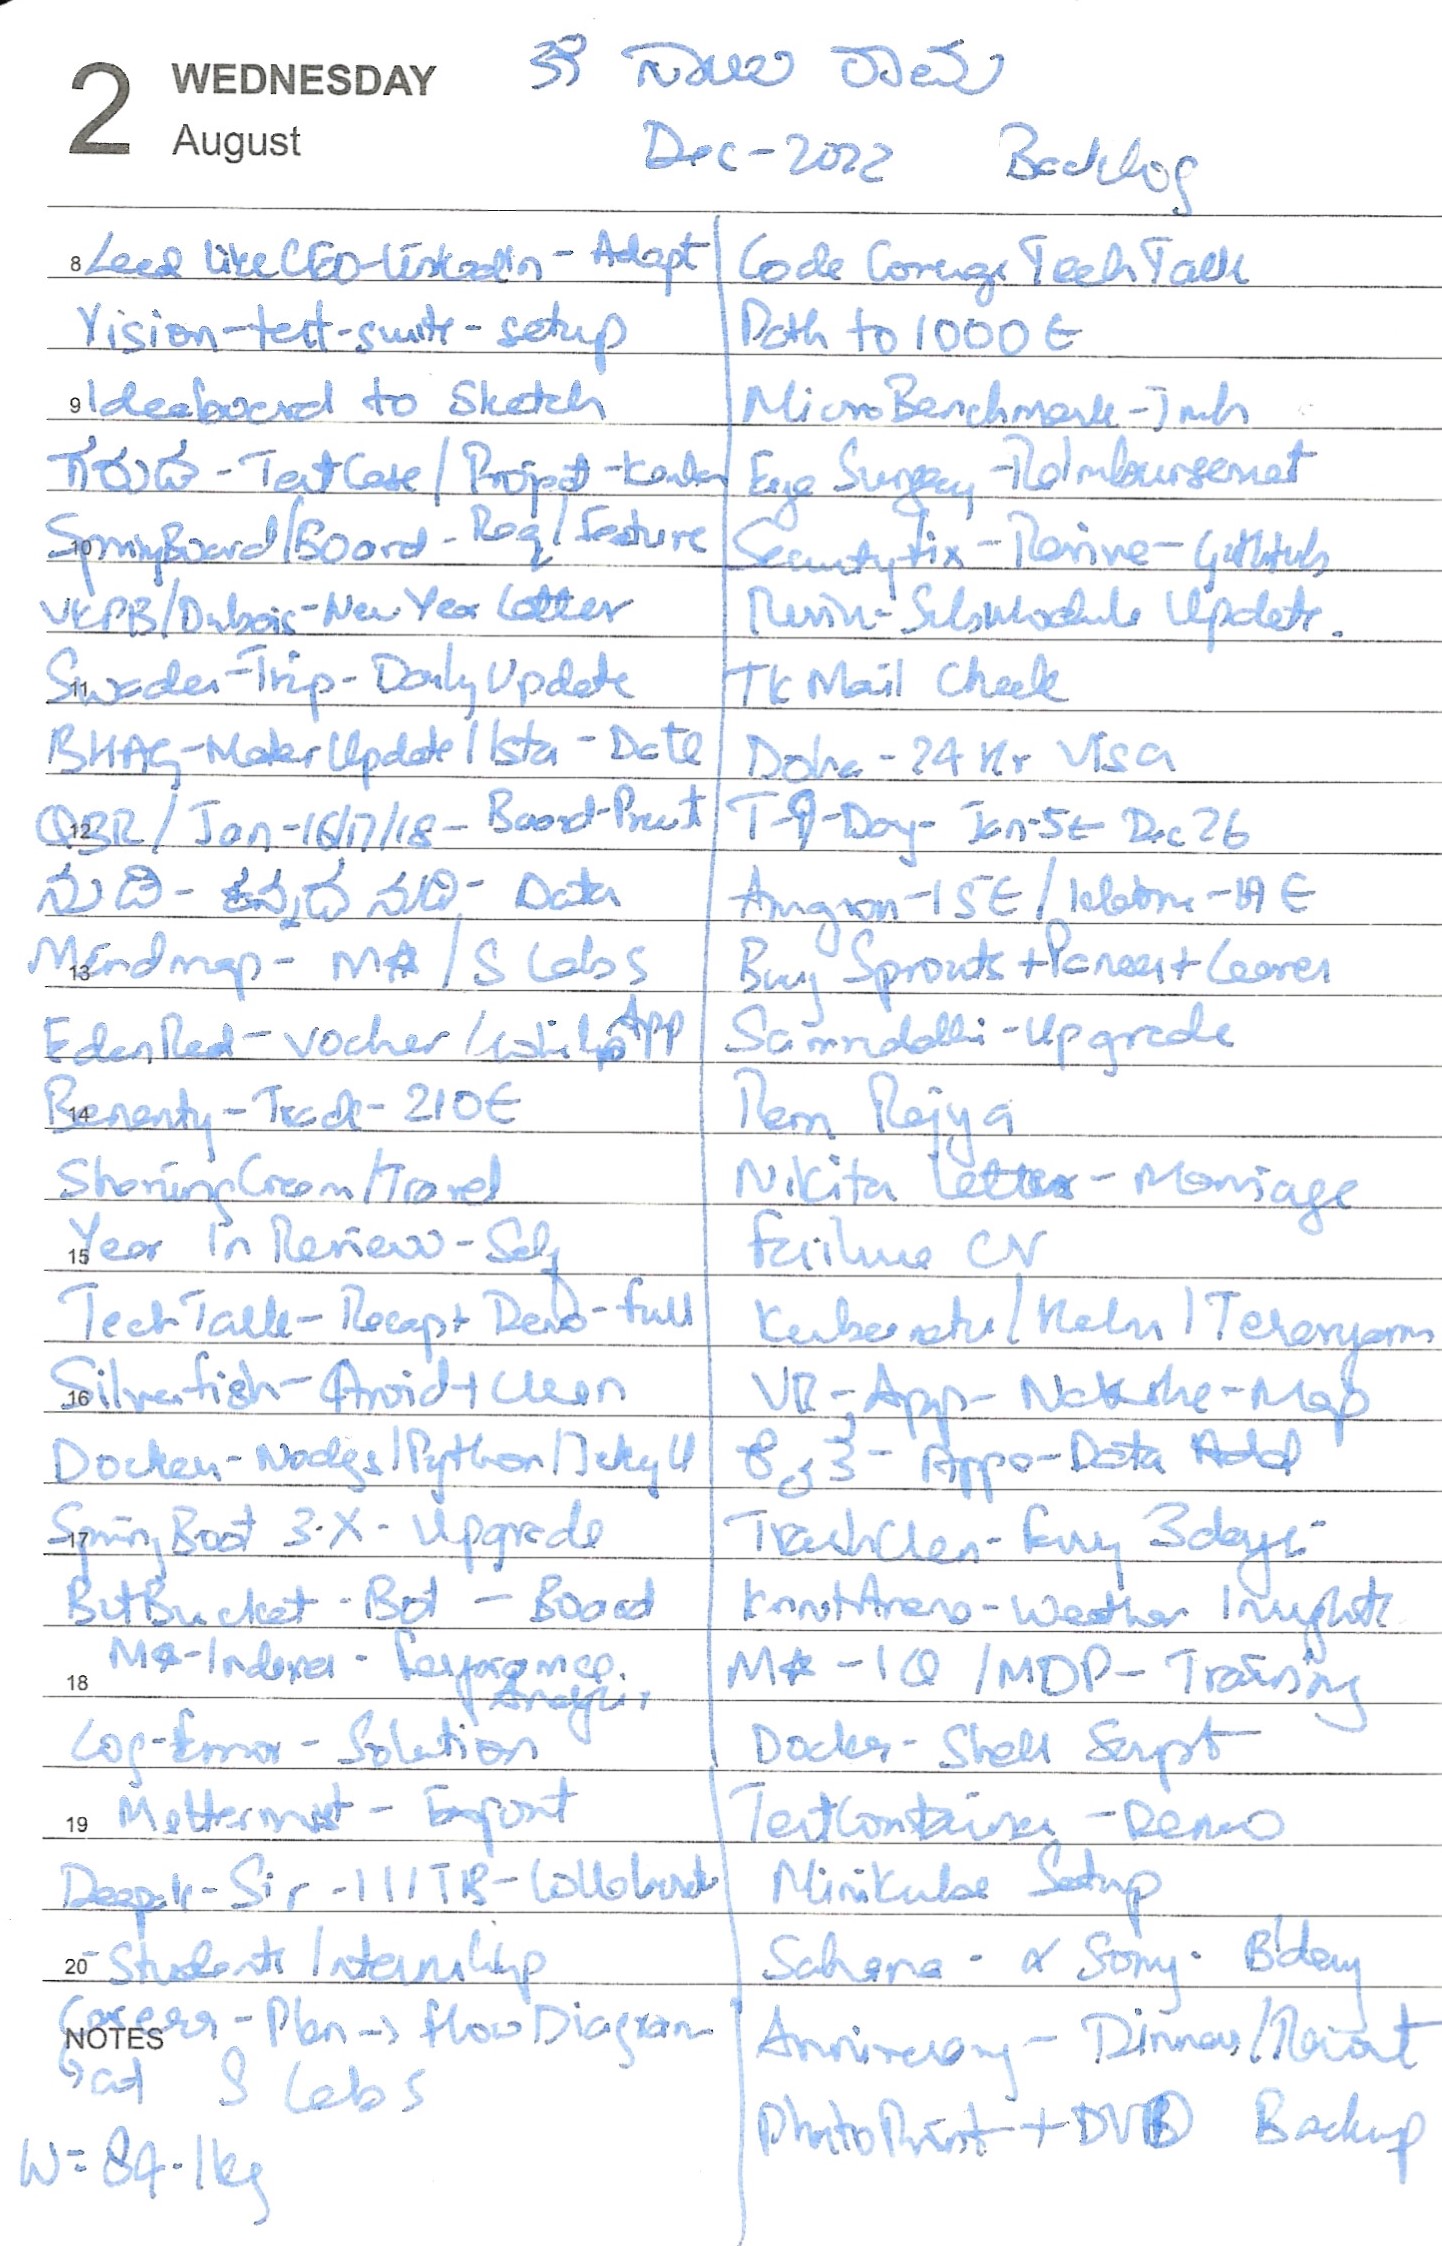 2 WEDNESDAY
August
Dec-2022 Backlog
8 Lead like CEO-LinkedIn - Adapt
Vision-test-suite-setup
9 Ideaboard to Sketch
ಗರುಡ - TestCase / Project -
10 SpringBoard/Board - Req/Feature
VKPB/Dubois-New Year Letter
11 Sweden-Trip-Daily Update
BHAG-Maker Update / - Date
12 QBR / Jan-16/17/18- Board-
ನುಡಿ - ಕನ್ನಡ ನುಡಿ - Data
13 Mindmap - M* / S Labs
EdenRed - vocher / App
14 Benenty - Track - 210€
ShavingCream/Travel
15 Year In Review - Self
TechTalk - Recap + Demo - full
16 Silverfish - Avoid + Clean
Docker - Nodejs/Python/Jekyll
17 SpringBoot 3.X - Upgrade
BitBucket - Bot - Board
18 M*-Indexer - Performance Analysis
Log-Error - Solution
19 Mattermost - Export
Deepak - Sir - IIITB - Collaborat
20 - Students Internship
NOTES Career - Plan → flow Diagram
↳ at S Labs
W = 84.1kg
Code Coverage TechTalk
Path to 1000 €
MicroBenchmark - Jmh
Eye Surgery - Reimbursement
Securityfix - Revive - GitHub
Revive - Submodule Update.
TK Mail Check
Doha - 24 Hr Visa
T-9-Day - Jan-5 Dec 26
Amazon - 15€ /
Buy Sprouts + Paneer + Leaves
Samruddhi - Upgrade
Ram Rajya
Nikita Letter - Marriage
Failure CV
Kubernetes / Helm /
VR - App - Nakshe - Map
- Apps - Data Add
TrashClean - Every 3days -
KnotArena - Weather Insights
M* - IQ / MDP - Training
Docker - Shell Script
TestContainers - Demo
Minikube Setup
Sahana - & Somy. B'day
Anniversary - Dinner /
PhotoPrint + DVD Backup